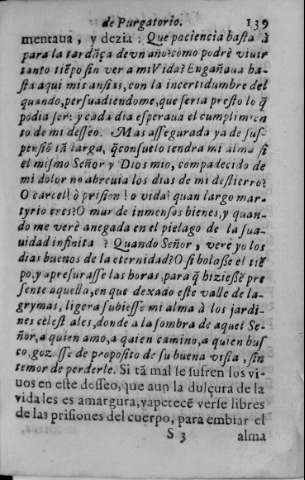 de Purgatorio. 139
mentaua, y dezia: Que paciencia basta à
para la tardãça de vn año? como podrè viuir
tanto tiẽpo sin ver a mi Vida? Engañaua ha-
sta aqui mis ansias, con la incertidumbre del
quando, persuadiendome, que seria presto lo q̃
podia ser: y cada dia esperaua el cumplimien
to de mi desseo. Mas assegurada ya de sus-
pensiõ tã larga, q̃ consuelo tendra mi alma si
el mismo Señor y Dios mio, compadecido de
mi dolor no abreuia los dias de mi destierro?
O carcel! ò prision! o vida! quan largo mar-
tyrio eres? O mar de inmensos bienes, y quan-
do me verè anegada en el pielago de la sua-
uidad infinita? Quando Señor, verè yo los
dias buenos de la eternidad? O si bolasse el tiẽ
po, y apresurasse las horas, para q̃ hiziessẽ pre
sente aquella, en que dexado este valle de la-
grymas, ligera subiesse mi alma à los jardi-
nes celestiales, donde a la sombra de aquel Se-
ñor, a quien amo, a quien camino, a quien bus
co, gozasse de proposito de su buena vista, sin
temor de perderle. Si tã mal se sufren los vi-
uos en este desseo, que aun la dulçura de la
vida les es amargura, y apetecẽ verse libres
de las prisiones del cuerpo, para embiar el
S 3 alma